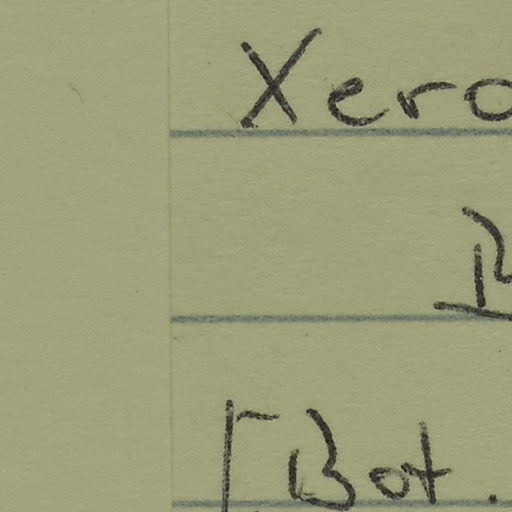 Xero
B
[Bot.